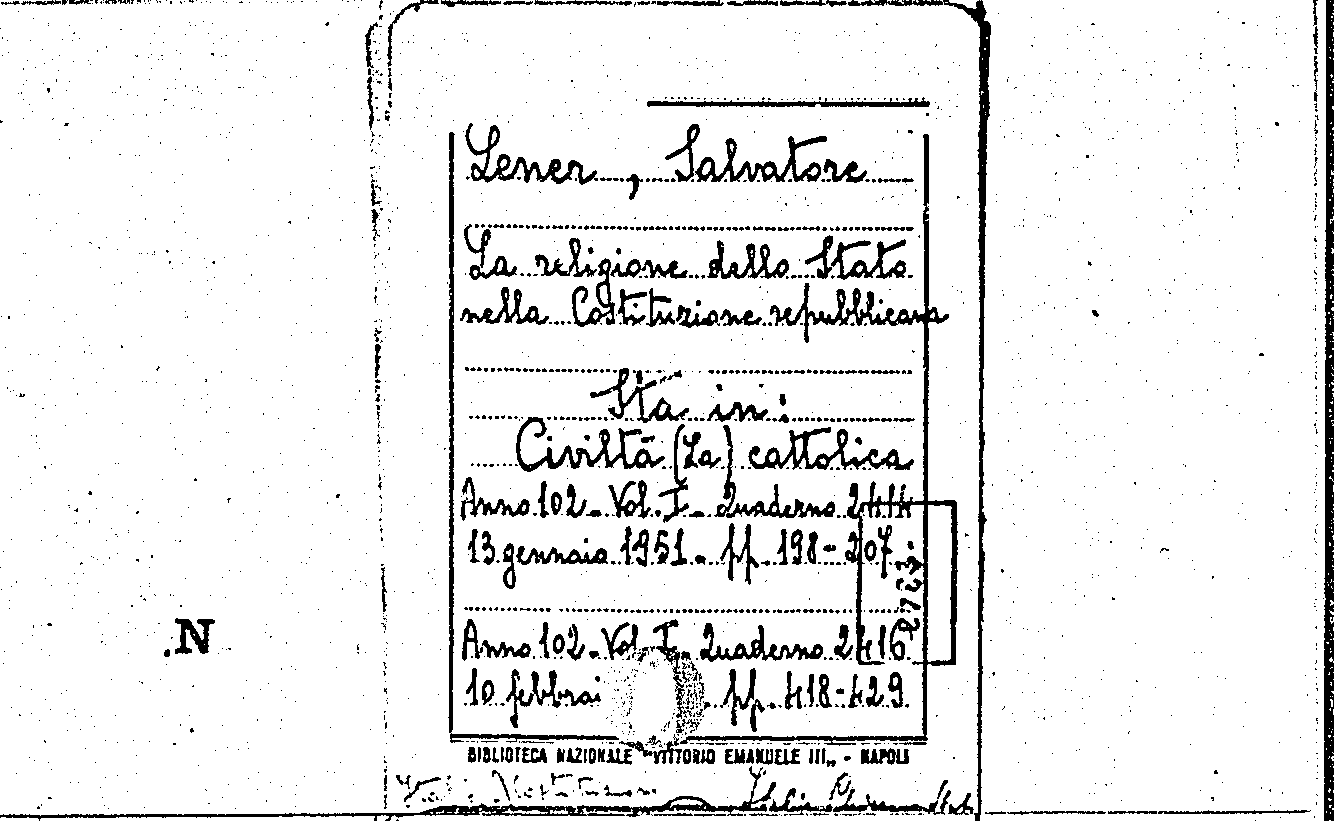 Lener, Salvatore
La religione dello Stato
nella Costituzione repubblicana
Sta in:
Civiltà (La) cattolica
Anno 102 - Vol. I - Quaderno 2414
13 gennaio 1951 - pp. 198-207
Anno 102 - Vol. I - Quaderno 2416
10 febbrai . pp. 418-429
BIBLIOTECA NAZIONALE "VITTORIO EMANUELE III„ - NAPOLI
.N